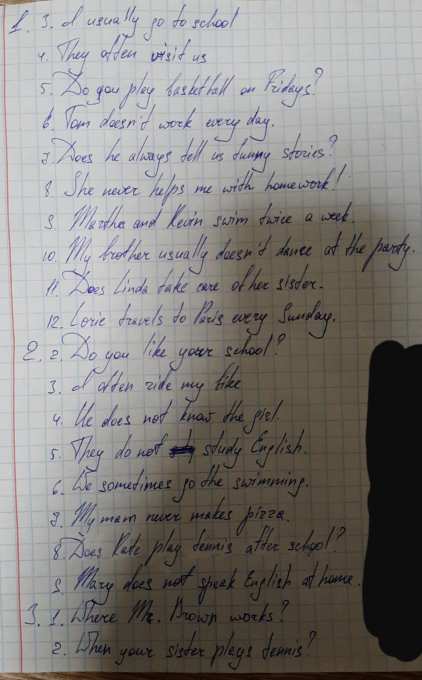 1. 3. I usually go to school
4. They often visit us
5. Do you play basketball on Fridays?
6. Tom doesn't work every day.
7. Does he always tell us funny stories?
8. She never helps me with homework!
9. Martha and Kevin swim twice a week.
10. My brother usually doesn't dance at the party.
11. Does Linda take care of her sister.
12. Lorie travels to Paris every Sunday.
2. 2. Do you like your school?
3. I often ride my bike
4. He does not know the girl.
5. They do not study English.
6. We sometimes go the swimming.
7. My mam never makes pizza.
8. Does Kate play tennis after school?
9. Mary does not speak English at home.
3. 1. Where Mr. Brown works?
2. When your sister plays tennis?